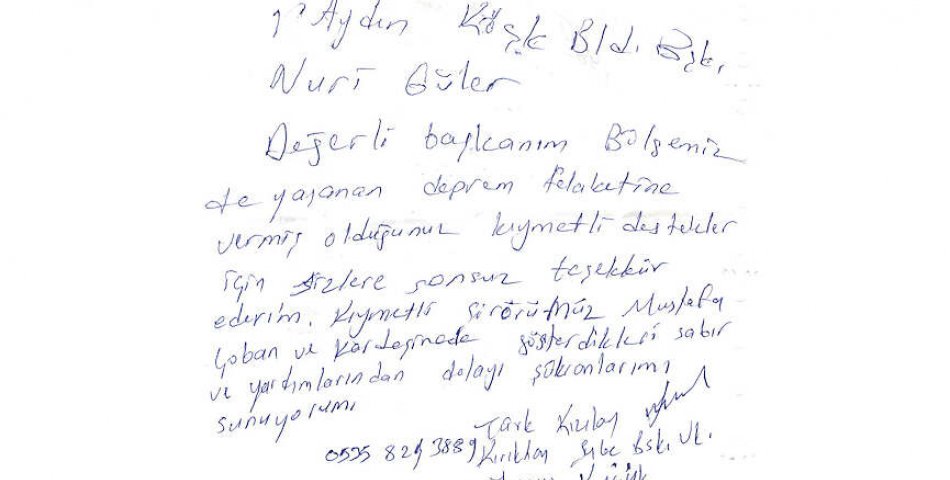 Aydın Köşk Bld. Bşk.
Nuri Güler
Değerli başkanım Bölgemiz
de yaşanan deprem felaketine
vermiş olduğunuz kıymetli destekler
için sizlere sonsuz teşekkür
ederim. Kıymetli şöförümüz Mustafa
Çoban ve kardeşinede gösterdikleri sabır
ve yardımlarından dolayı şükranlarımı
sunuyorum
Türk Kızılay
Kırıkhan Şube Bşk. Vk.